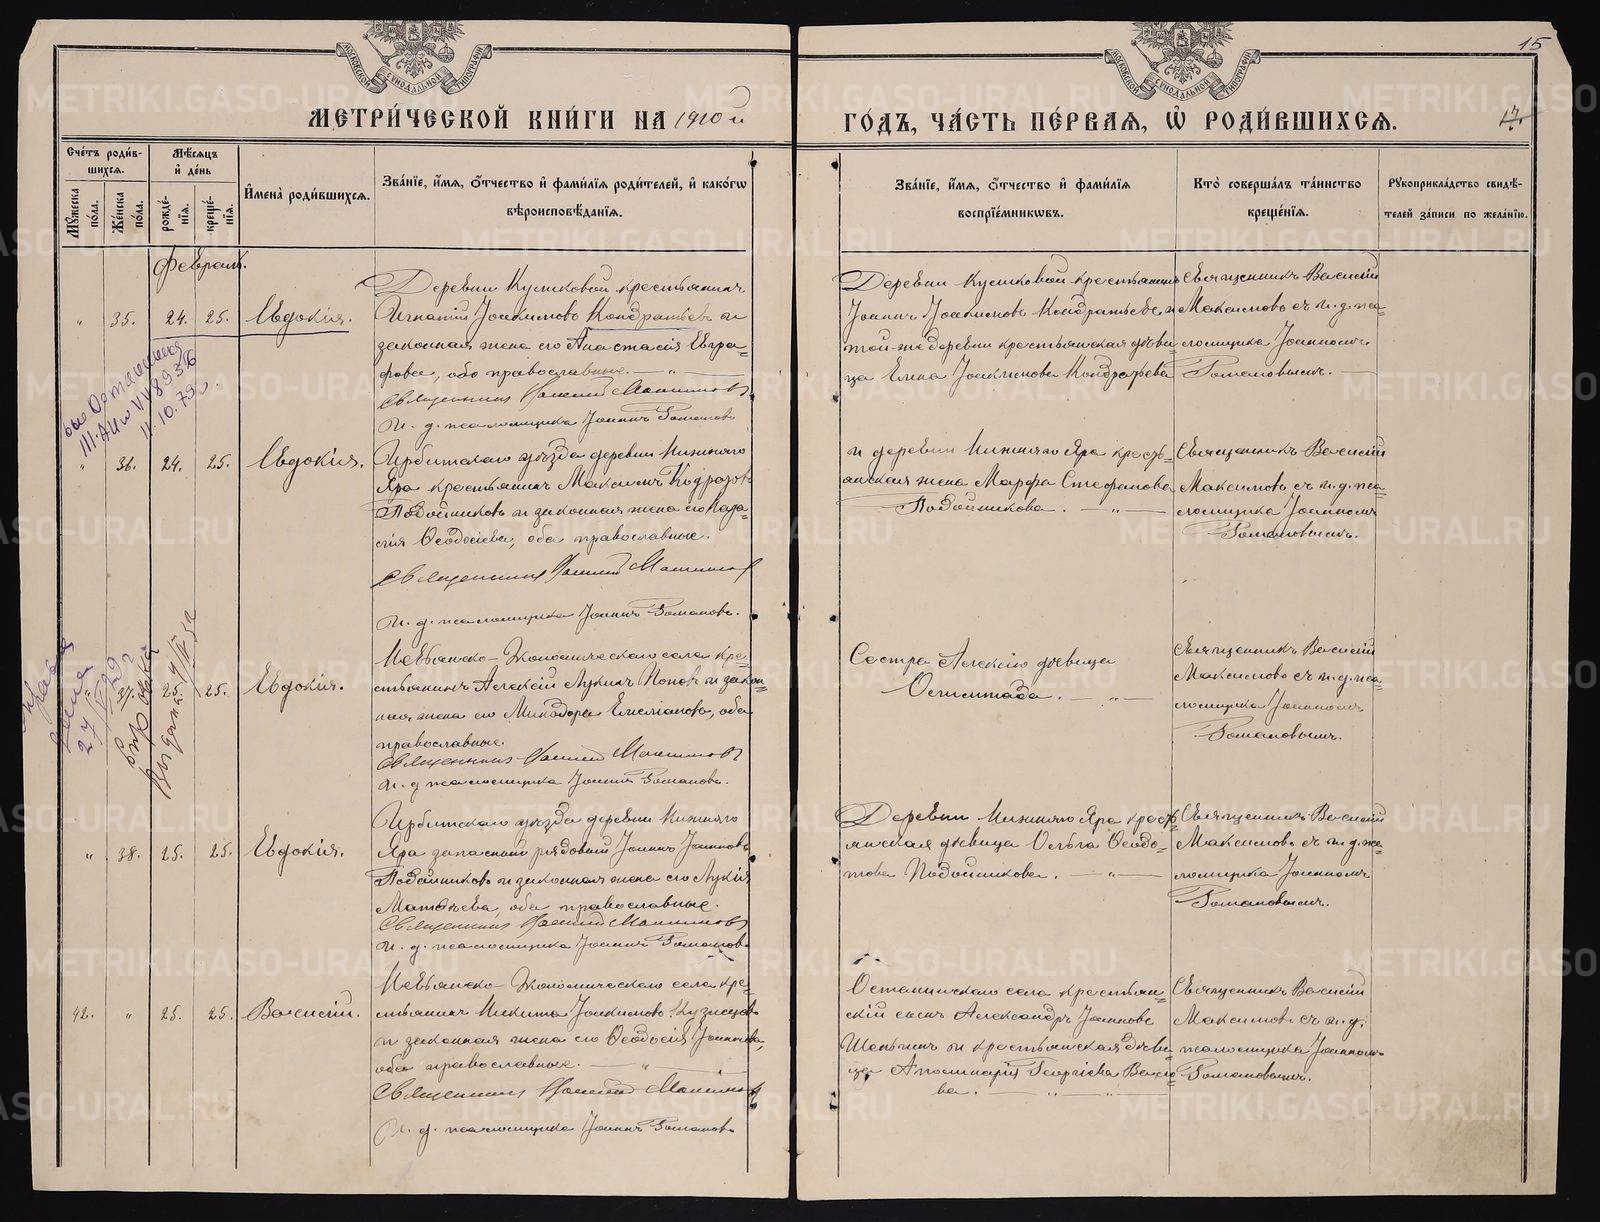 МОСКОВСКОЙ СУНОДАЛЬНОЙ ТИПОГРАФІИ
МОСКОВСКОЙ СУНОДАЛЬНОЙ ТИПОГРАФІИ
15
17.
МЕТРИ́ЧЕСКОЙ КНИ́ГИ НА 1910й
ГО́ДЪ, ЧА́СТЬ ПЕ́РВАЯ, Ѡ РОДИ́ВШИХСЯ.
Сче́тъ роди́в-
шихся.
Мꙋ́жеска по́ла.
Же́нска по́ла.
Мѣ́сяцъ и де́нь
рожде́-
нїя.
креще́-
нїя.
Имена̀ роди́вшихся.
Зва́нїе, и́мя, о́тчество и фами́лїя роди́телей, и како́гѡ
вѣроисповѣ́данїя.
Зва́нїе, и́мя, о́тчество и фами́лїя
воспрїе́мникѡвъ.
Кто̀ соверша́лъ та́инство
креще́нїя.
Рꙋкоприкла́дство свидѣ́-
телей за́писи по жела́нїю.
Февраль.
" 35. 24. 25. Евдокія.
Деревни Куликовой крестьянинъ
Игнатій Іоакимовъ Кондратьевъ и
законная жена его Анастасія Евгра-
фова, оба православные. — " —
Священникъ Василій Максимовъ
И. д. псаломщика Іоаннъ Романовъ
Деревни Куликовой крестьянинъ
Іоаннъ Іоакимовъ Кондратьевъ и
той-же деревни крестьянская дѣви-
ца Елена Іоакимова Кондратьева
Священникъ Василій
Максимовъ съ и. д. пса-
ломщика Іоанномъ
Романовымъ. —
III-АИ №
11.10.73
" 36. 24. 25. Евдокія.
Ирбитскаго уѣзда деревни Нижняго
Яра крестьянинъ Максимъ
Подойниковъ и законная жена его
Ѳеодосіева, оба православные.
Священникъ Василій Максимовъ
И. д. псаломщика Іоаннъ Романовъ.
и деревни Нижняго Яра кресть-
янская жена Марфа Стефанова
Подойникова. — " —
Священникъ Василій
Максимовъ съ и. д. пса-
ломщика Іоанномъ
Романовымъ.
" 37. 25. 25. Евдокія.
Невьянско-Экономическаго села кре-
стьянинъ Алексій Лукинъ Поповъ и закон-
ная жена его Миліодора Емеліанова, оба
православные.
Священникъ Василій Максимовъ
И. д. псаломщика Іоаннъ Романовъ.
Сестра Алексію дѣвица
— " —
Священникъ Василій
Максимовъ съ и. д. пса-
ломщика Іоанномъ
Романовымъ.
" 38. 25. 25. Евдокія.
Ирбитскаго уѣзда деревни Нижняго
Яра запасный рядовой Іоаннъ Іоанновъ
Подойниковъ и законная жена его Лукія
Матѳеева, оба православные.
Священникъ Василій Максимовъ
И. д. псаломщика Іоаннъ Романовъ
Деревни Нижняго Яра кресть-
янская дѣвица Ольга Ѳеодо-
това Подойникова. — " —
Священникъ Василій
Максимовъ съ и. д. пса-
ломщика Іоанномъ
Романовымъ.
42. " 25. 25. Василій.
Невьянско-Экономическаго села кре-
стьянинъ Никита Іоакимовъ Кузнецовъ
и законная жена его Ѳеодосія Іоаннова,
оба православные. — " —
Священникъ Василій Максимовъ
И. д. псаломщика Іоаннъ Романовъ
Останинскаго села крестьян-
скій сынъ Александръ Іоанновъ
Шеньгинъ и крестьянская дѣви-
ца Аполинарія Георгіева
ва. — " — " —
Священникъ Василій
Максимовъ съ и. д.
псаломщика Іоанномъ
Романовымъ.
METRIKI.GASO-URAL.RU